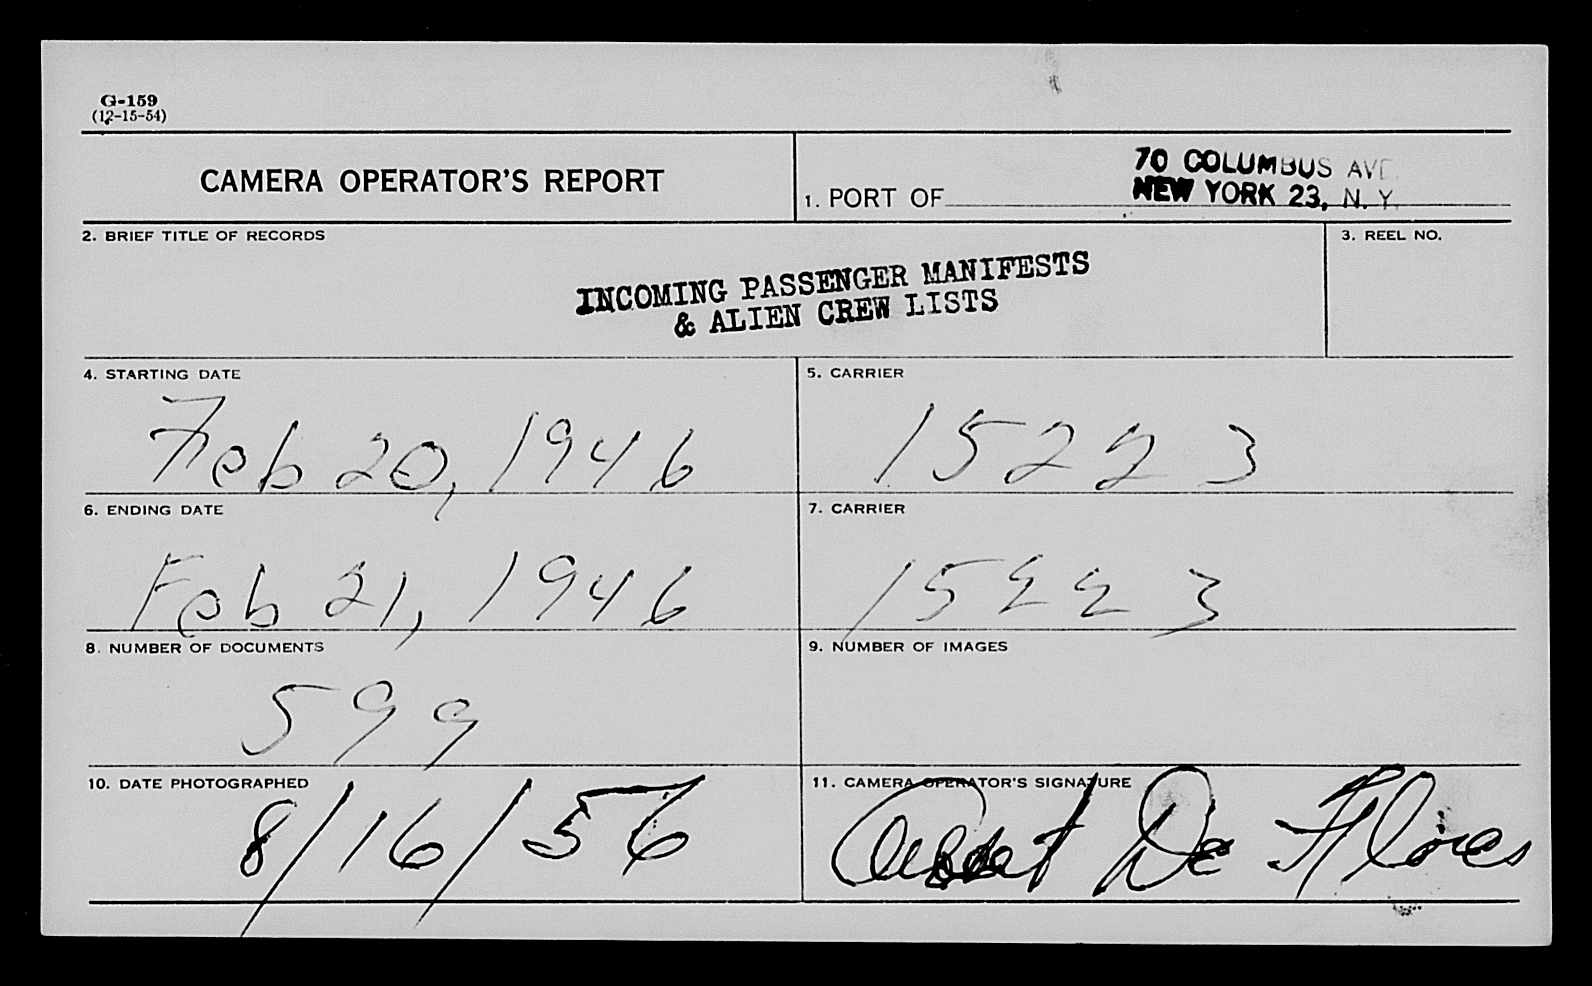 G-159
(12-15-54)
CAMERA OPERATOR'S REPORT
1. PORT OF
70 COLUMBUS AVE.
NEW YORK 23, N. Y.
2. BRIEF TITLE OF RECORDS
INCOMING PASSENGER MANIFESTS
& ALIEN CREW LISTS
3. REEL NO.
4. STARTING DATE
Feb 20, 1946
5. CARRIER
15223
6. ENDING DATE
Feb 21, 1946
7. CARRIER
15223
8. NUMBER OF DOCUMENTS
599
9. NUMBER OF IMAGES
10. DATE PHOTOGRAPHED
8/16/56
11. CAMERA OPERATOR'S SIGNATURE
De Flores